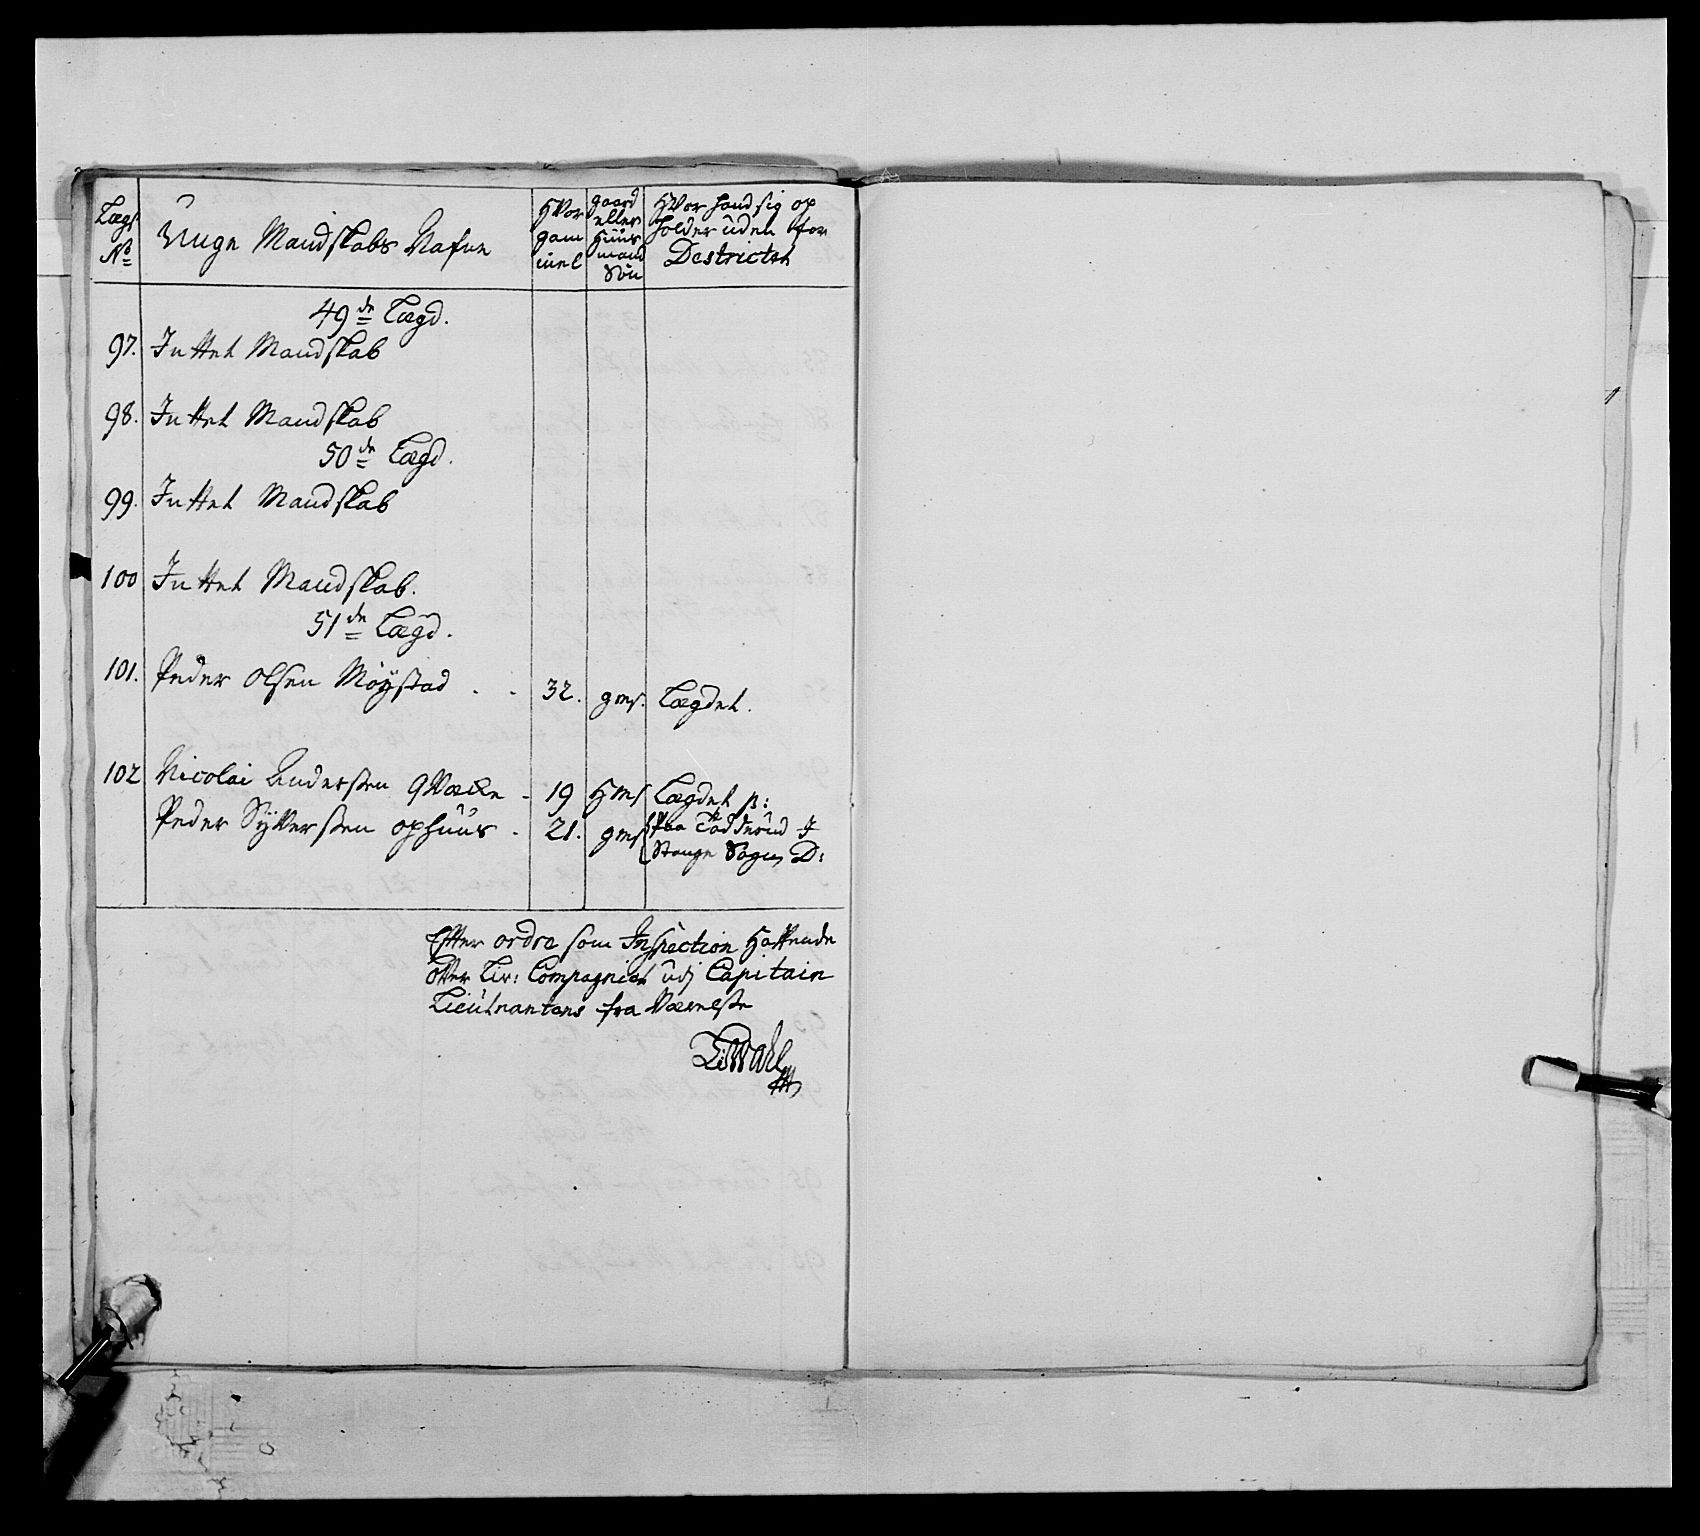 Lægs No Unge Mandskabs Nafne Hvor gam mel gaard eller Huus mand Søn Hvor hand sig op holder uden for Destrictet
49de Lægd.
97. Intet Mandskab
98. Intet Mandskab
50de Lægd.
99. Intet Mandskab
100 Intet Mandskab.
51de Lægd.
101. Peder Olsen Möÿstad . . 32. gms. Lægdet.
102 Nicolai Andersen Qvæke - 19 Hms Lægdet p:
Peder Sÿversen ophuus . 21. gms paa Tødderud I
Stange Sogn D:
Efter ordre som Inspection Hafvende
over Liv: Compagniet udj Capitain
Lieutnantens fra Værelse